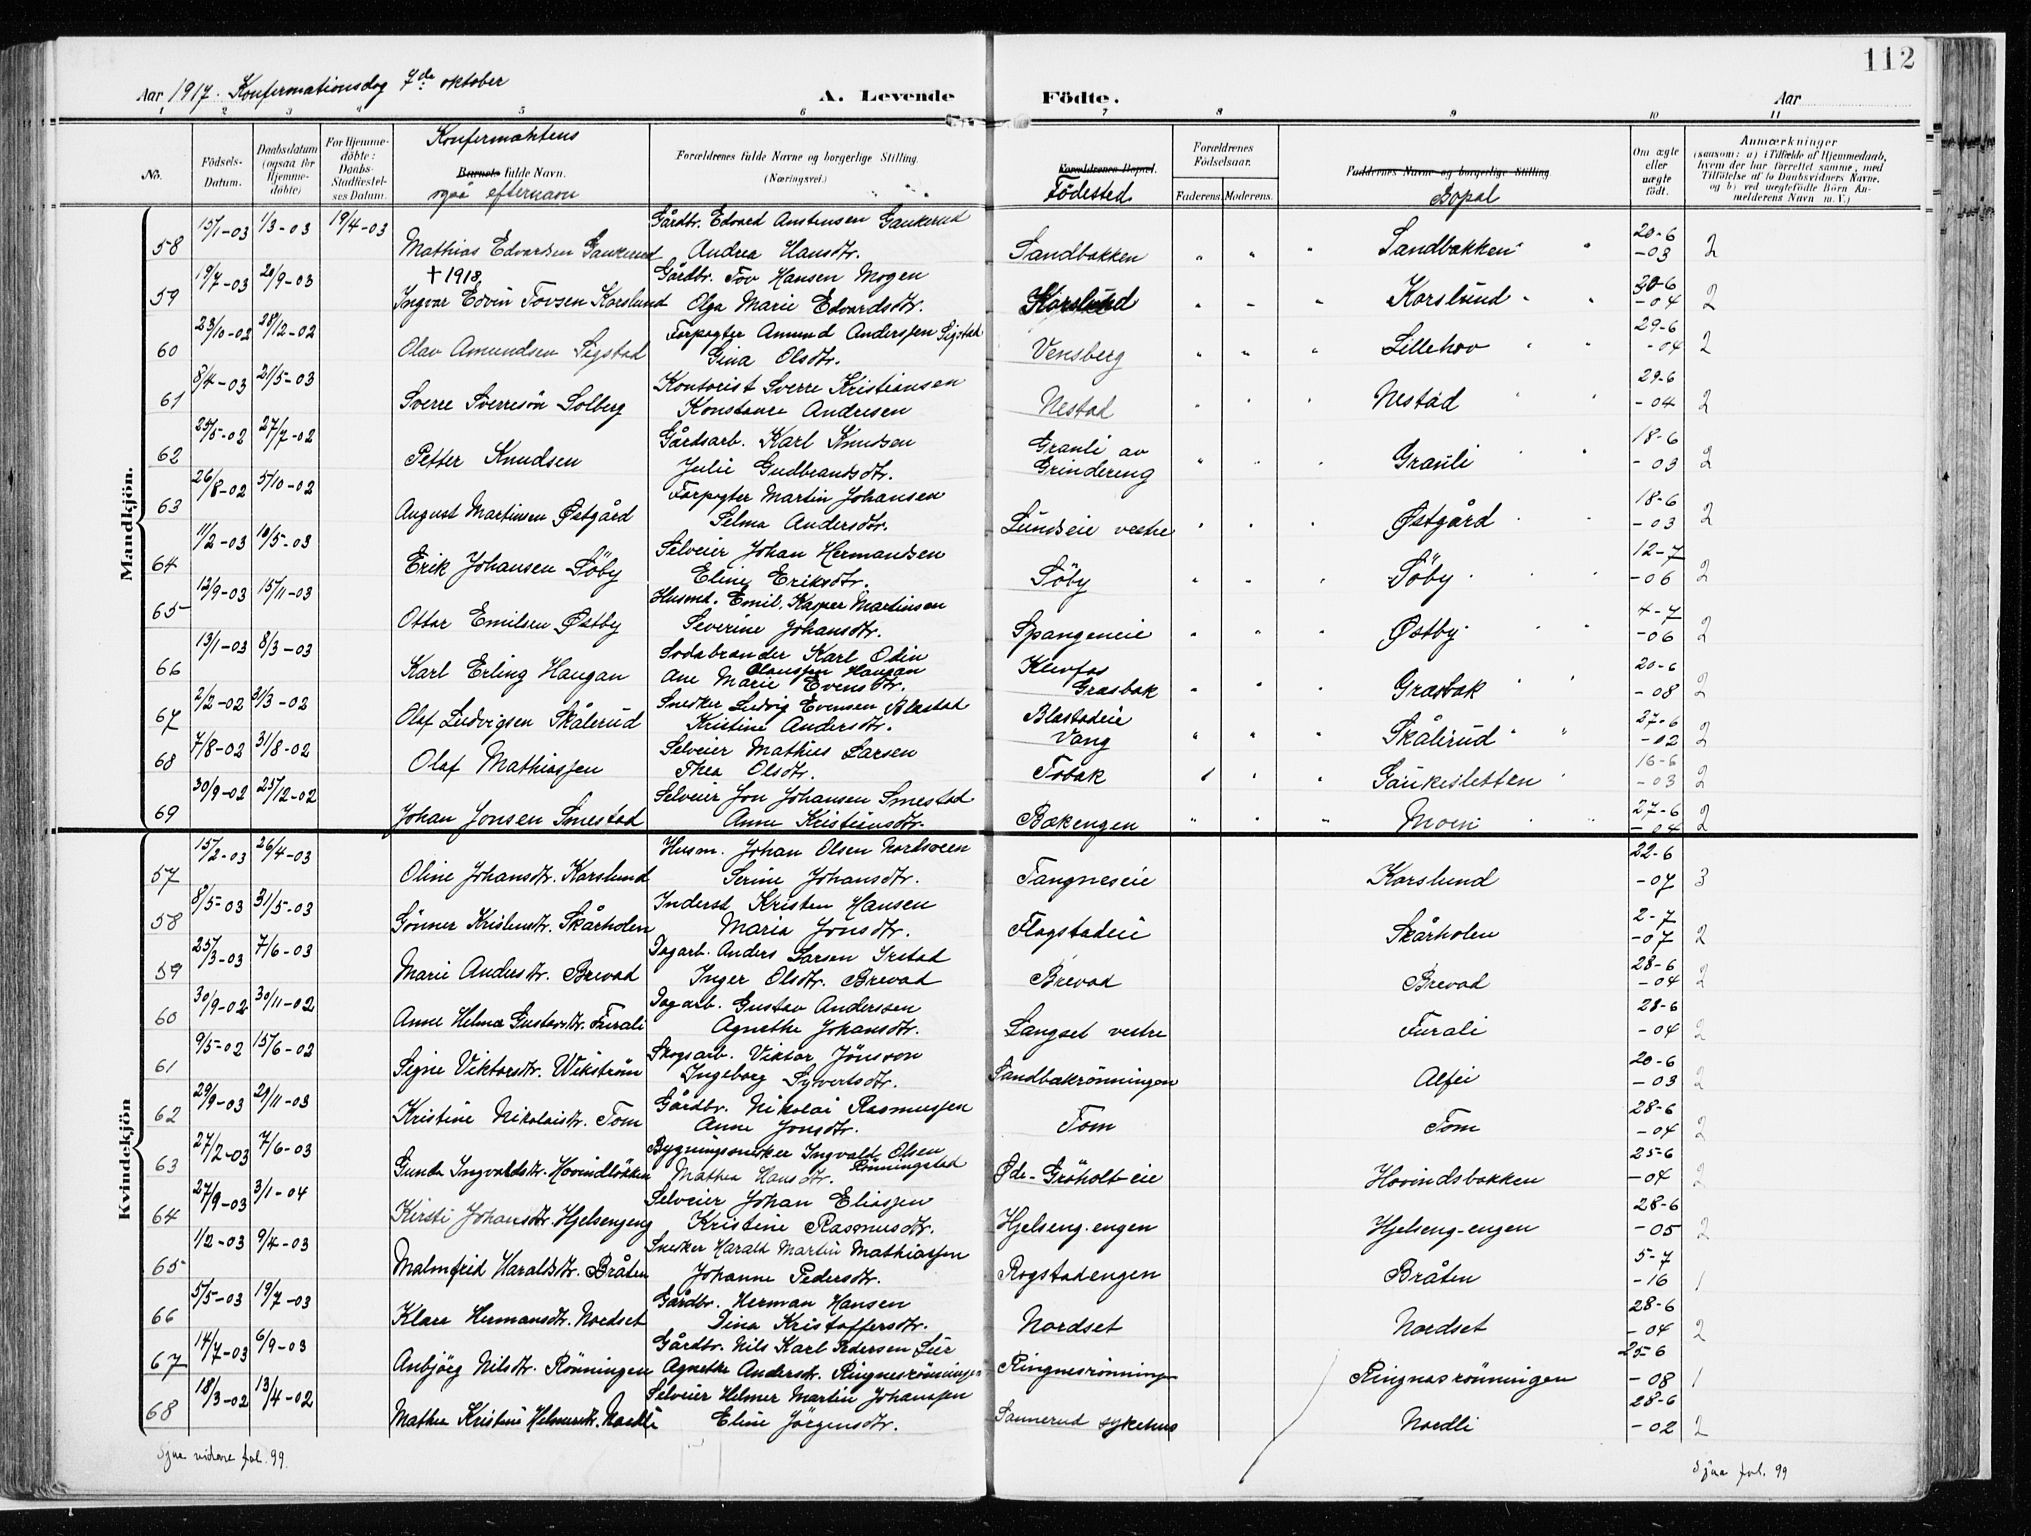 112
Aar 1917. Konfirmationsdag 7de oktober
A. Levende Födte.
Aar
1 2 3 4 5 6 7 8 9 10 11
No.
Födsels-Datum.
Daabsdatum (ogsaa for Hjemme-döbte)
For Hjemme-döbte: Daabs-Stadfæstel-ses Datum.
Konfirmantens
Barnets fulde Navn.
også efternavn
Forældrenes fulde Navne og borgerlige Stilling.
(Næringsvei.)
Forældrenes Bopæl.
Födested
Forældrenes Födselsaar.
Faderens. Moderens.
Faddernes Navne og borgerlige Stilling
Bopæl
Om ægte eller uægte födt.
Anmærkninger
(saasom: a) i Tilfælde af Hjemmedaab, hvem der har forrettet samme, med Tilföielse af to Daabsvidners Navne, og b) ved uegtefödte Börn An-melderens Navn m. V.)
Mandkjön.
58 15/1-03 1/3-03 19/4-03 Mathias Edvardsen Gaukerud Gårdbr. Edvard Amstensen Gaukerud
Andrea Hansdtr. Sandbakken " " " Sandbakken " 20-6 -03 2
59 19/7-03 20/9-03 † 1918 Gårdbr. Tov Hansen Mogen
Ingvar Edvin Tovsen Korslund Olga Marie Edvardsdtr. Korslund " " " Korslund " " 30-6 -04 2
60 23/10-02 28/12-02 Olav Amundsen Sigstad Forpagter Amund Anderssen Sigstad
Gina Olsdtr. Vensberg " " " Lillehov " " 29-6 -04 2
61 8/4-03 21/5-03 Sverre Sverresön Solberg Kontorist Sverre Kristiansen
Konstance Andresen Nestad " " " Nestad " " 29-6 -04 2
62 25/5-02 27/7-02 Petter Knudsen Gårdsarb. Karl Knudsen
Julie Gudbrandsdtr. Grauli av Grindereng " " " Grauli " " 18-6 -03 2
63 26/8-02 5/10-02 August Martinsen Østgård Forpagter Martin Johansen
Selma Andersdtr. Lundseie vestre " " " Østgård " " 18-6 -03 2
64 11/2-03 10/5-03 Erik Johansen Söby Selveier Johan Hermandsen
Eline Eriksdtr. Söby " " " Söby " " 12-7 -06 2
65 12/9-03 15/11-03 Ottar Emilsen Østby Husmd. Emil Kasper Martinsen
Severine Johansdtr. Spangeneie " " " Østby " " 4-7 -06 2
66 13/1-03 8/3-03 Karl Erling Haugan Sodabrander Karl Odin
Olaussen Haugan
Ane Marie Evensdtr. Klevfos Græsbak " " " Græsbak " " 20-6 -08 2
67 2/2-02 31/3-02 Olaf Ludvigsen Skålerud Snedker Ludvig Evensen Blæstad
Kristine Andersdtr. Blæstadeie Vang " " " Skålerud " " 27-6 -02 2
68 7/8-02 31/8-02 Olaf Mathiassen Selveier Mathias Larsen
Thea Olsdtr. Tobak " " " Gaukesletten " 16-6 -03 2
69 30/9-02 25/12-02 Johan Jonsen Smestad Selveier Jon Johansen Smestad
Anne Kristiansdtr. Bækengen " " " Moen " " 27-6 -04 2
Kvindekjön
57 15/2-03 26/4-03 Oline Johansdtr. Korslund Husm. Johan Olsen Nordsveen
Serine Johansdtr. Tangneseie Korslund 22-6 -07 3
58 8/5-03 31/5-03 Gönner Kristensdtr. Skårholen Inderst Kristen Hansen
Maria Jonsdtr. Flagstadeie Skårholen 2-7 -07 2
59 25/3-03 7/6-03 Marie Andersdtr. Brevad Dagarb. Anders Larsen Irstad
Inger Olsdtr. Brevad Brevad Brevad 28-6 -04 2
60 30/9-02 30/11-02 Anne Helma Gustavsdtr. Furali Dagarb. Gustav Anderssen
Agnethe Johansdtr. Langset vestre Furali 28-6 -04 2
61 9/5-02 15/6-02 Signe Viktorsdtr. Wikström Skogsarb. Viktor Jönsson
Ingeborg Syvertsdtr. Sandbakrönningen Alfei 20-6 -03 2
62 29/9-03 29/11-03 Kristine Nikolaisdtr. Tom Gårdbr. Nikolai Rasmussen
Anne Jonsdtr. Tom Tom 28-6 -04 2
63 27/2-03 7/6-03 Gunda Ingvaldsdtr. Hovindlökken Bygningssnekker Ingvald Olsen
Rönningstad
Mathea Hansdtr. Øde-Gröholt-eie Hovindsbakken 25-6 -04 2
64 27/9-03 3/1-04 Kirsti Johansdtr. Hjelsengeng Selveier Johan Eliassen
Kristine Rasmusdtr. Hjelseng-engen Hjelseng-engen 28-6 -05 2
65 1/2-03 9/4-03 Malmfrid Haraldsdtr. Bråten Snekker Harald Martin Mathiassen
Johanne Pedersdtr. Rogstadengen Bråten 5-7 -16 1
66 5/5-03 19/7-03 Klara Hermansdtr. Nordset Gårdbr. Herman Hansen
Dina Kristoffersdtr. Nordset Nordset 28-6 -04 2
67 14/7-03 6/9-03 Anbjörg Nilsdtr. Rönningen Gårdbr. Nils Karl Pedersen Lier
Agnethe Andersdtr. Ringnesrönningen Ringnesrönningen Ringnesrönningen 25-6 -08 1
68 18/3-02 13/4-02 Mathea Kristine Helmersdtr. Nordli Selveier Helmer Martin Johanssen
Eline Jörgensdtr. Sannerud sykehus Nordli 28-6 -02 2
Sjaa videre fol. 99.
Sjaa fol. 99